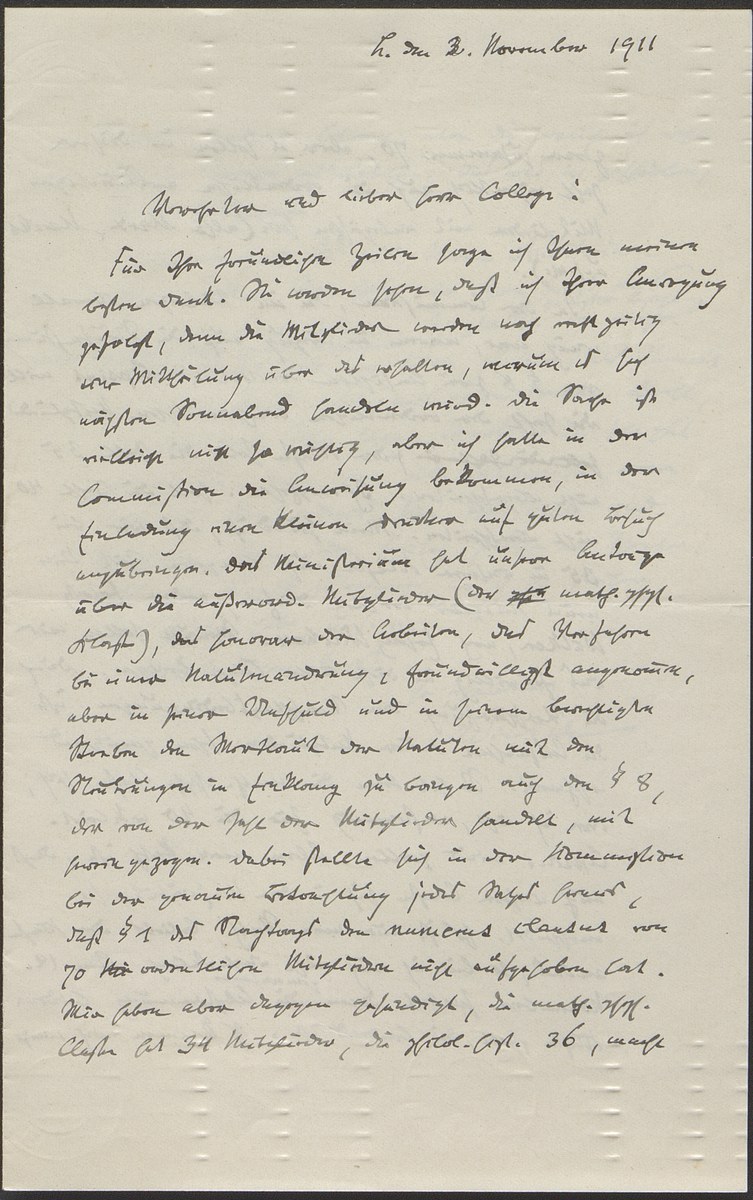 L. den 2. November 1911
Verehrter und lieber Herr College!
Für Ihre freundlichen Zeilen sage ich Ihnen meinen
besten Dank. Sie werden sehen, daß ich Ihrer Anregung
gefolgt, denn die Mitglieder werden noch rechtzeitig
eine Mittheilung über das erhalten, worum es sich
nächsten Sonnabend handeln wird. Die Sache ist
vielleicht nicht so wichtig, aber ich hatte in der
Commission die Anweisung bekommen, in der
Einladung einen kleinen Drucker auf guten Besuch
anzubringen. Das Ministerium hat unsere Anträge
über die außerord. Mitglieder (der math. phys.
Klasse), das Honorar der Arbeiten, das Verfahren
bei einer Statutenänderung, freundwilligst angenommen,
aber in seiner Unschuld und in seinem berechtigten
Streben den Wortlaut der Statuten mit den
Neuerungen in Einklang zu bringen auch den § 8,
der von der Zahl der Mitglieder handelt, mit
hereingezogen. Dabei stellte sich in der Kommission
bei der genauen Betrachtung jedes Satzes heraus,
daß § 1 des Nachtrags den numerus clausus von
70 ordentlichen Mitgliedern nicht aufgehoben hat.
Wir haben aber dagegen gesündigt, die math. phys.
Classe hat 34 Mitglieder, die philol.-hist. 36, macht